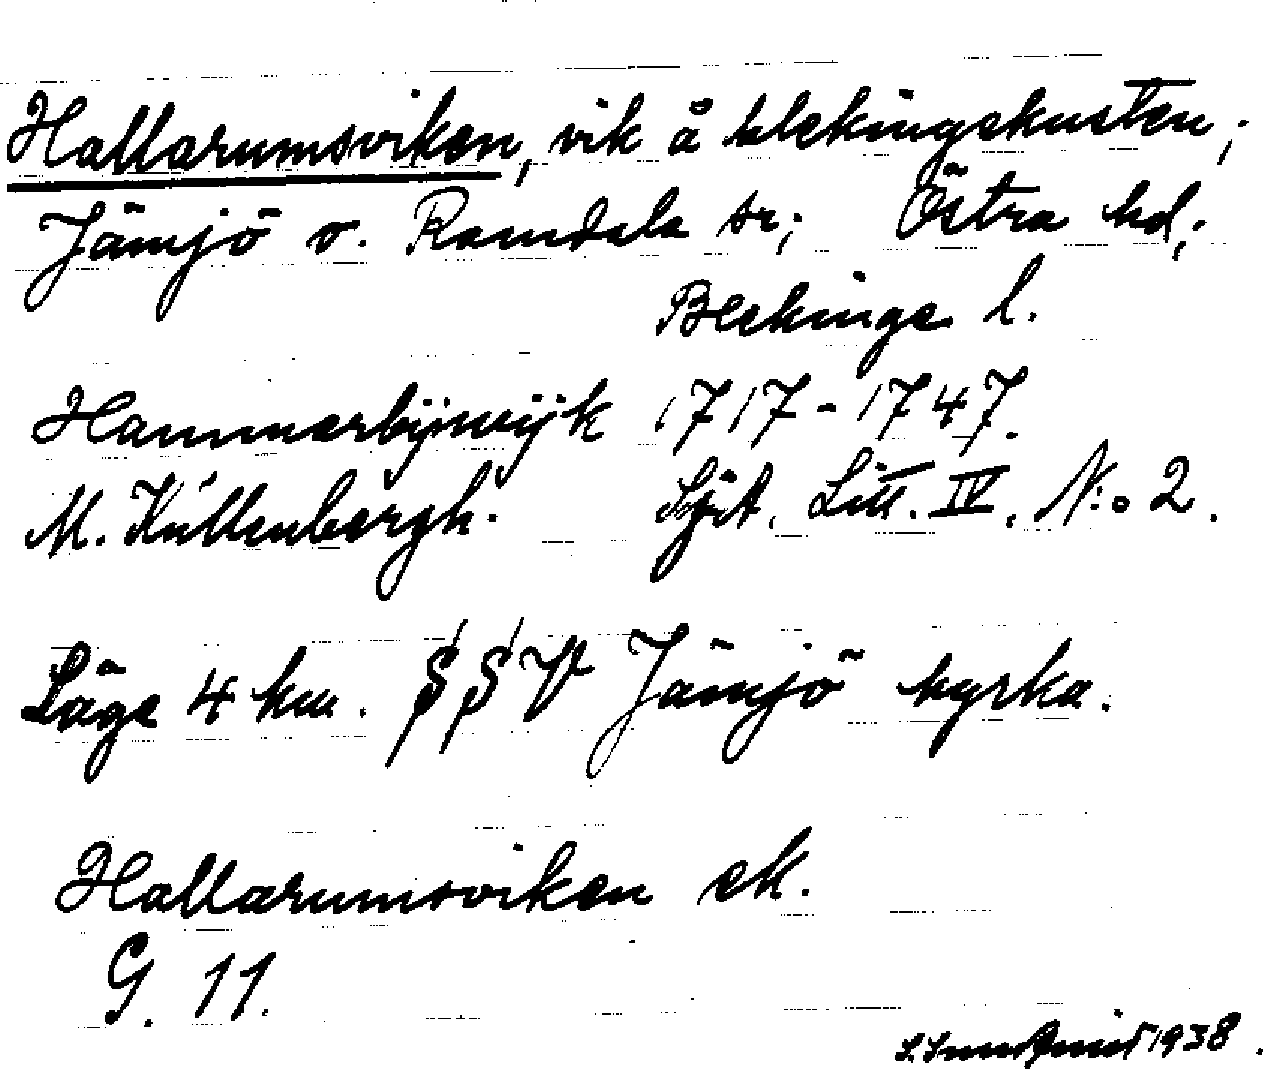 Hallarumsviken, vik å blekingekusten;
Jämjö o. Ramdala sr; Östra hd;
Blekinge l.
Hammarbijwijk 1717-1747.
M. Kúllenbergh. Sjöt. Litt. IV. N:o 2.
Läge 4 km. SSV Jämjö kyrka.
Hallarumsviken ek.
G. 11.
1938.